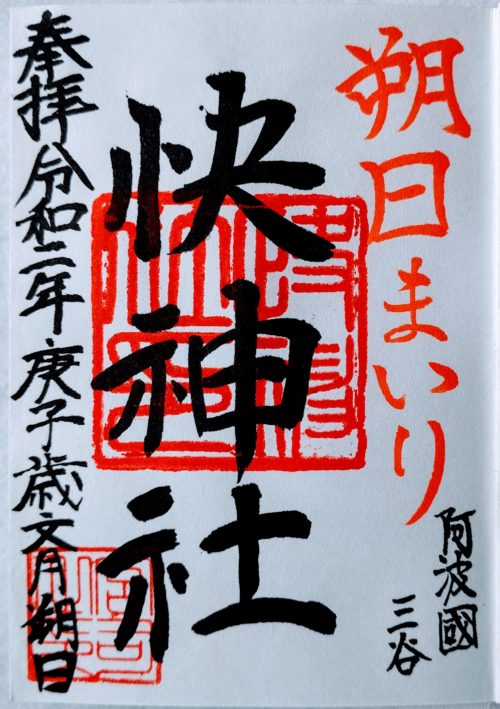 朔日まいり
阿波國
三谷
快神社
奉拝令和二年庚子歳文月朔日